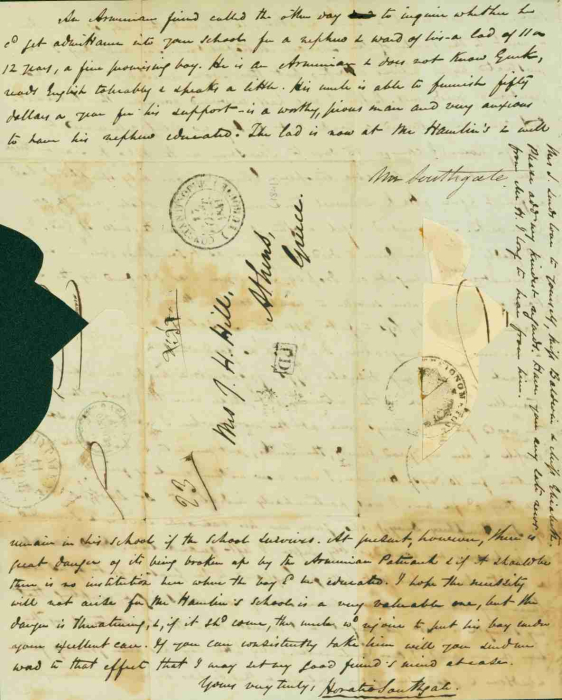 An Armenian friend called the other day to inquire whether he
cd get admittance into your school for a nephew & ward of his - a lad of 11 or
12 years, a fine promising boy. He is an Armenian & does not know Greek,
reads English tolerably & speaks a little. His uncle is able to furnish fifty
dollars a year for his support - is a worthy, pious man and very anxious
to have his nephew educated. The lad is now at Mr Hamlin's & will
Mrs Southgate
Mrs S. sends love to yourself, Miss Baldwin & Miss Elizabeth.
Please add my kindest regards. Have you any late news
from Mr H. I long to hear from him.
Mrs J. H. Hill,
Athens,
Greece.
remain in his school if the school survives. At present, however, there is
great danger of its being broken up by the Armenian Patriarch & if it should be
there is no institution here where the boy cd be educated. I hope the necessity
will not arise for Mr Hamlin's school is a very valuable one, but the
danger is threatening, &, if it shd come, the uncle wd rejoice to put his boy under
your excellent care. If you can consistently take him will you send me
word to that effect that I may set my good friend's mind at ease.
Yours very truly, Horatio Southgate